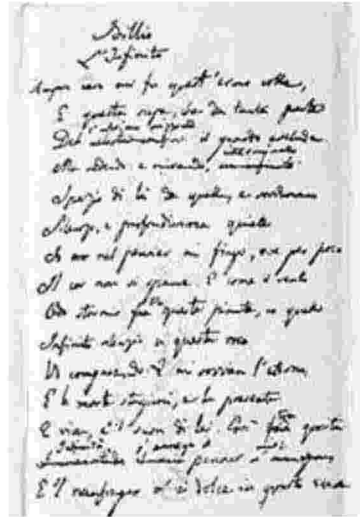 Idillio
L'Infinito
Sempre caro mi fu quest'ermo colle,
E questa siepe, che da tanta parte
De l'ultimo orizzonte il guardo esclude.
Ma sedendo e mirando,
Spazio di là da quella, e sovrumani
Silenzi, e profondissima quiete
Io nel pensier mi fingo, ove per poco
Il cor non si spaura. E come il vento
Odo stormir fra queste piante, io quello
Infinito silenzio a questa voce
Vo comparando: E mi sovvien l'eterno,
E le morte stagioni, e la presente
E viva, e 'l suon di lei. Così questa
pensier
E 'l naufragar m'è dolce in questo mare